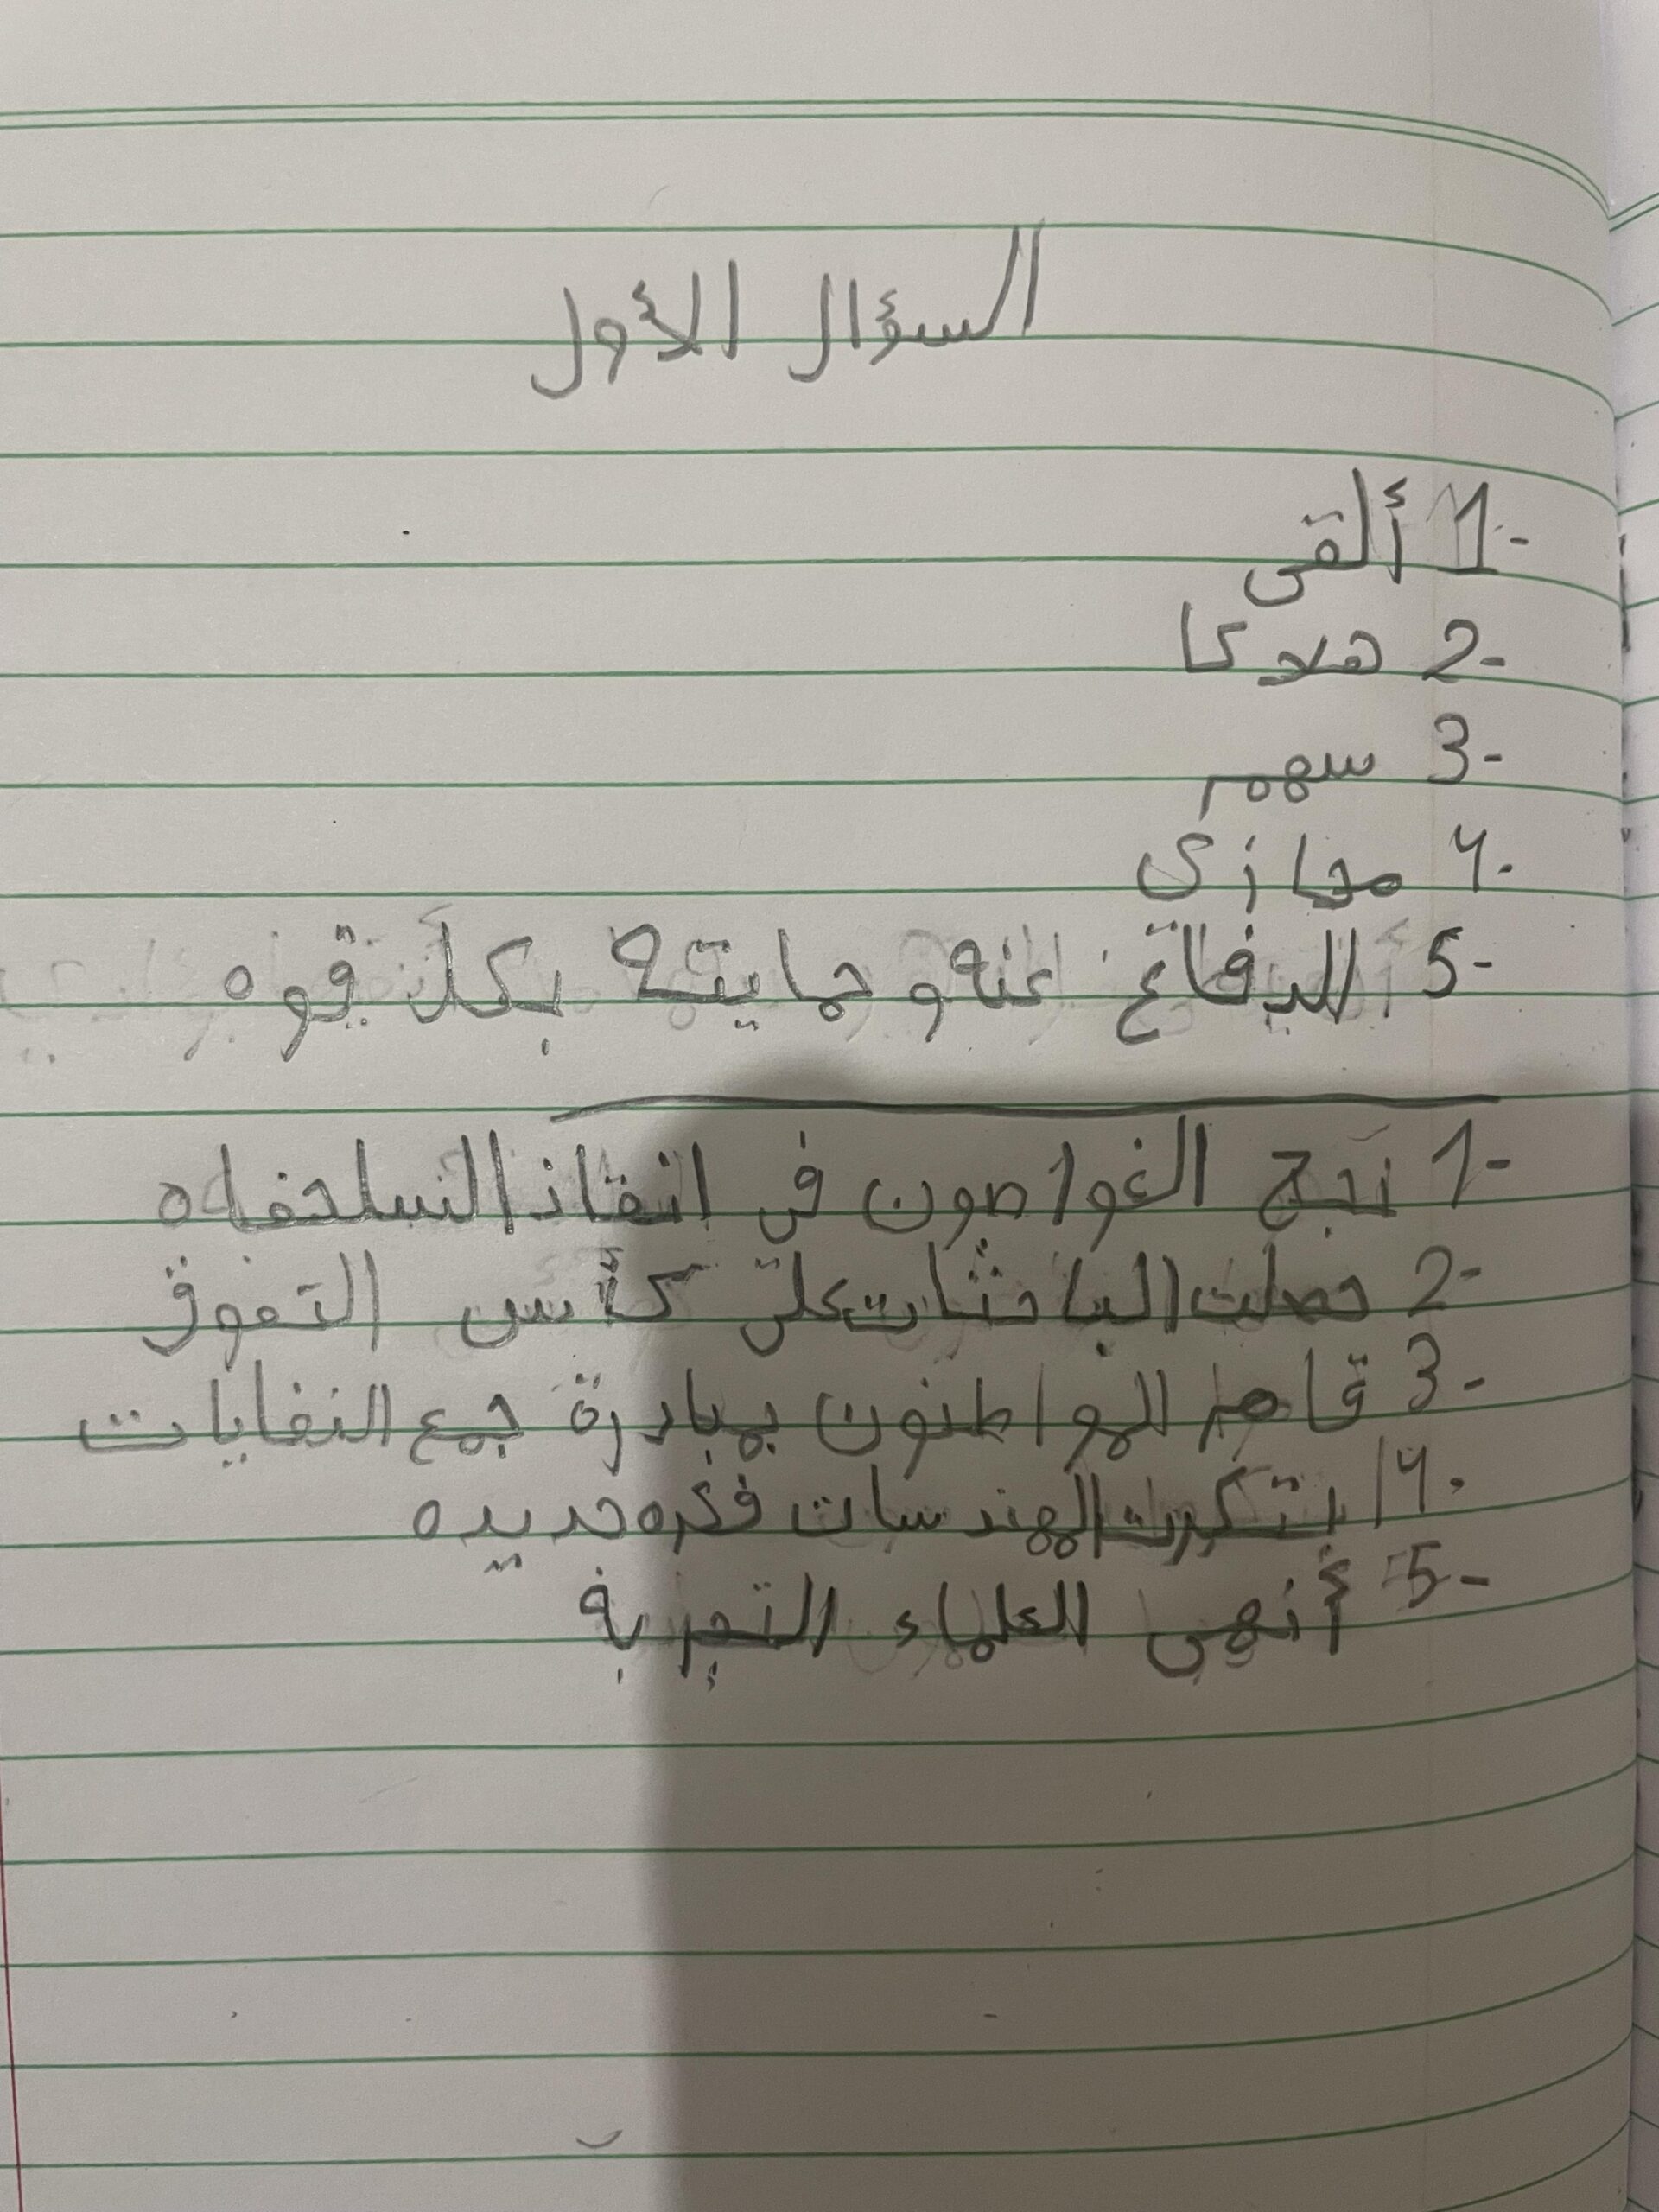 السؤال الأول
1- ألقى
2- هلاكا
3- سهم
4- مجازى
5- للدفاع عنه وحمايته بكل قوه
1- نجح الغواصون فى انقاذ السلحفاه
2- حصلت الباحثات على كأس التفوق
3- قام المواطنون بمبادرة جمع النفايات
4- ابتكرت المهندسات فكره جديده
5- أنهى العلماء التجربة